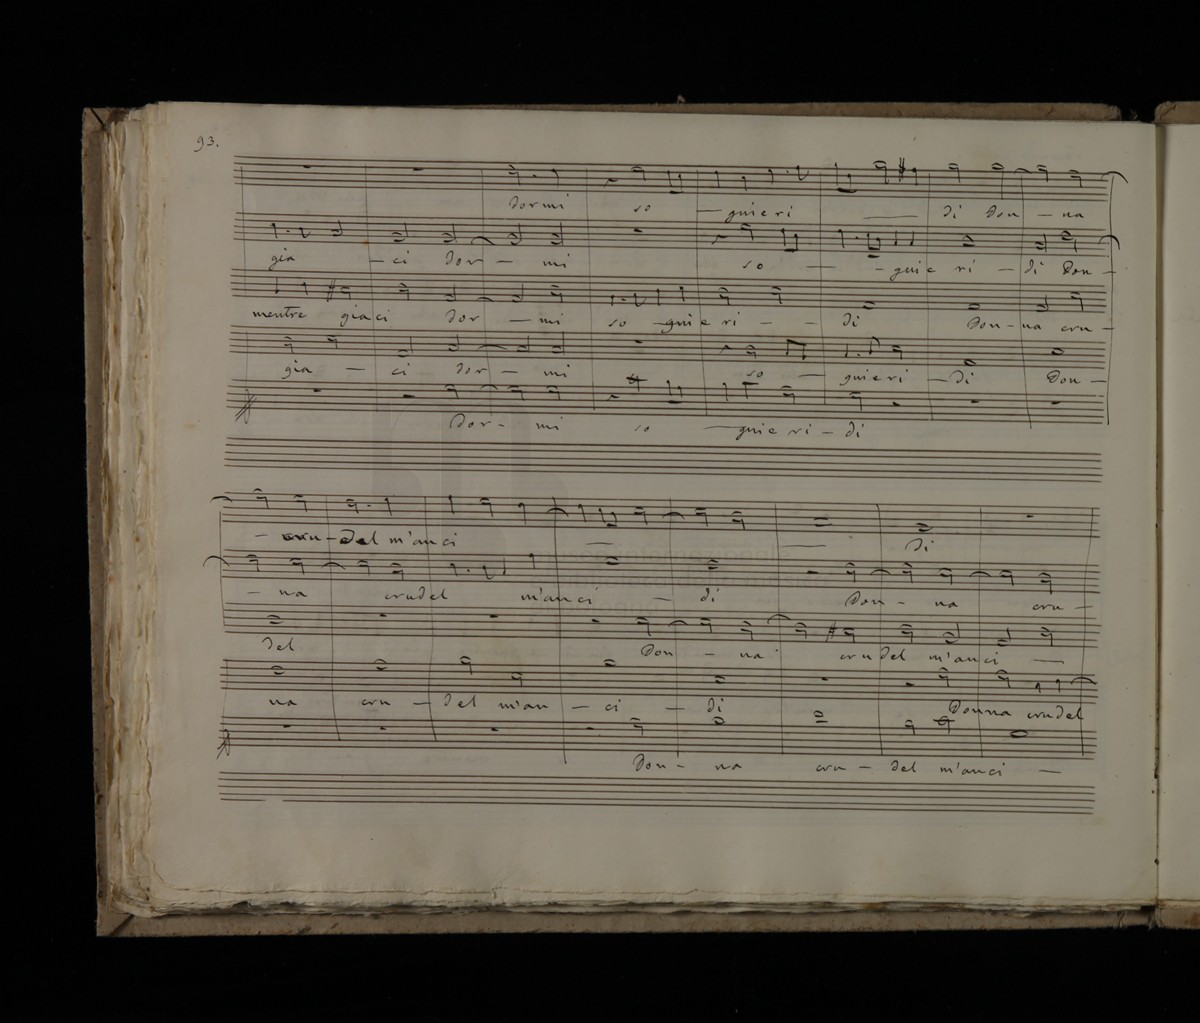 93.
Dormi so — guieri — di Don — na
gia — ci dor — mi so — — guie ri — di Don —
mentre giaci dor — mi so — guie ri — — di Don — na cru —
gia — ci dor — mi so — guieri — di Don —
Dor — mi so — guie ri — di
— cru — del m'anci — — di
— na crudel m'anci — di Don — na cru —
del Don — na crudel m'anci —
na cru — del m'an — ci — di Donna crudel
Don — na cru — del m'anci —